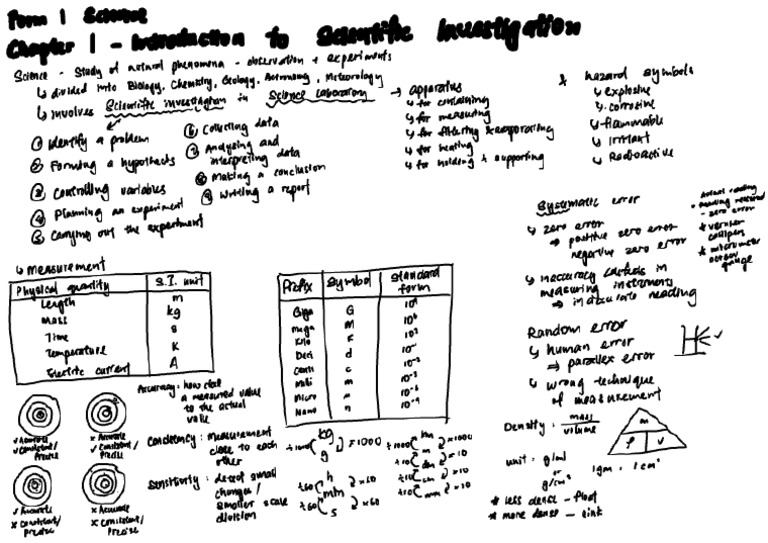 Form 1 Science
Chapter 1 - Introduction to Scientific Investigation
Science - Study of natural phenomena - observation + experiments
↳ divided into Biology, Chemistry, Geology, Astronomy, Meteorology
↳ involves Scientific investigation in Science Laboratory
① Identify a problem
② Forming a hypothesis
③ Controlling variables
④ Planning an experiment
⑤ Carrying out the experiment
⑥ Collecting data
⑦ Analysing and
interpreting data
⑧ Making a conclusion
⑨ Writing a report
→ apparatus
↳ for containing
↳ for measuring
↳ for filtering & evaporating
↳ for heating
↳ for holding + supporting
* hazard symbols
↳ explosive
↳ corrosive
↳ flammable
↳ irritant
↳ Radioactive
Systematic error
↳ zero error
→ positive zero error
negative zero error
↳ inaccuracy
in
measuring instruments
⇒ inaccurate reading
actual reading
= reading
- zero error
* vernier
calipers
* micrometer
screw
gauge
Random error
↳ human error
⇒ parallex error
↳ wrong technique
of measurement
↳ measurement
Physical quantity S.I. unit
Length m
Mass kg
Time s
Temperature K
Electric current A
Prefix Symbol Standard
form
Giga G 10⁹
mega M 10⁶
Kilo K 10³
Deci d 10⁻¹
Centi c 10⁻²
Mili m 10⁻³
Micro 10⁻⁶
Nano n 10⁻⁹
✓ Accurate
✓ Consistent/
Precise
× Accurate
✓ Consistent/
Precise
✓ Accurate
× Consistent/
Precise
× Accurate
× Consistent/
Precise
Accuracy : how close
a measured value
to the actual
value
Consistency : measurement
close to each
other
Sensitivity : detect small
changes /
smaller scale
division
÷1000 kg ×1000
g
÷60 h ×60
min
÷60 s ×60
÷1000 km ×1000
÷10 m ×10
÷10 cm ×10
÷10 mm ×10
Density : mass
volume
unit : g/ml
or
g/cm³
m
ρ v
* less dense - float
* more dense - sink